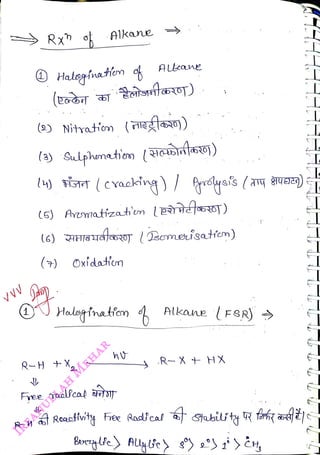 ⇒ Rxⁿ of Alkane →
① Halogination of Alkane
(एल्केन का हैलोजनीकरण)
(2) Nitration (नाइट्रीकरण)
(3) Sulphonation (सल्फोनीकरण)
(4) भंजन (cracking) / Pyrolysis (ताप अपघटन)
(5) Aromatization (एरोमेटीकरण)
(6) समावयवीकरण (Isomerisation)
(7) Oxidation
VVV Imp
① Halogination of Alkane (FSR) →
R-H + X₂ hν → R-X + HX
⇓
Free radical बनेगा
R-H की Reactivity Free Radical की stability पर निर्भर करती है।
Benzylic > Allylic > 3° > 2° > 1° > ĊH₃
MEHAR